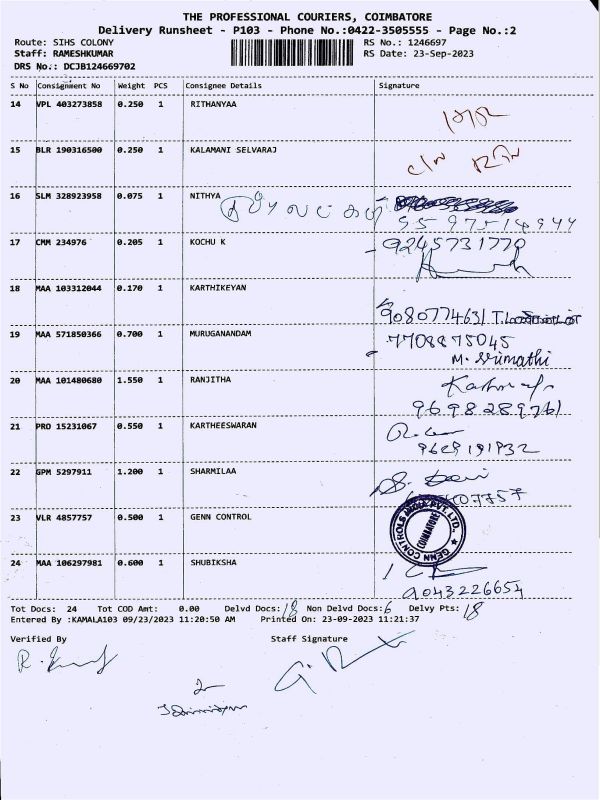 THE PROFESSIONAL COURIERS, COIMBATORE
Delivery Runsheet - P103 - Phone No.:0422-3505555 - Page No.:2
Route: SIHS COLONY RS No.: 1246697
Staff: RAMESHKUMAR RS Date: 23-Sep-2023
DRS No.: DCJB124669702
S No Consignment No Weight PCS Consignee Details Signature
14 VPL 403273858 0.250 1 RITHANYAA
15 BLR 190316500 0.250 1 KALAMANI SELVARAJ
16 SLM 328923958 0.075 1 NITHYA
9597514944
17 CMM 234976 0.205 1 KOCHU K 9245731770
18 MAA 103312044 0.170 1 KARTHIKEYAN
9080774631
19 MAA 571850366 0.700 1 MURUGANANDAM 7708875045
M. Srimathi
20 MAA 101480680 1.550 1 RANJITHA
9698289761
21 PRO 15231067 0.550 1 KARTHEESWARAN
9629191932
22 GPM 5297911 1.200 1 SHARMILAA
23 VLR 4857757 0.500 1 GENN CONTROL
GENN CONTROLS INDIA PVT. LTD.,
COIMBATORE
24 MAA 106297981 0.600 1 SHUBIKSHA
9043226654
Tot Docs: 24 Tot COD Amt: 0.00 Delvd Docs: 18 Non Delvd Docs: 6 Delvy Pts: 18
Entered By :KAMALA103 09/23/2023 11:20:50 AM Printed On: 23-09-2023 11:21:37
Verified By Staff Signature